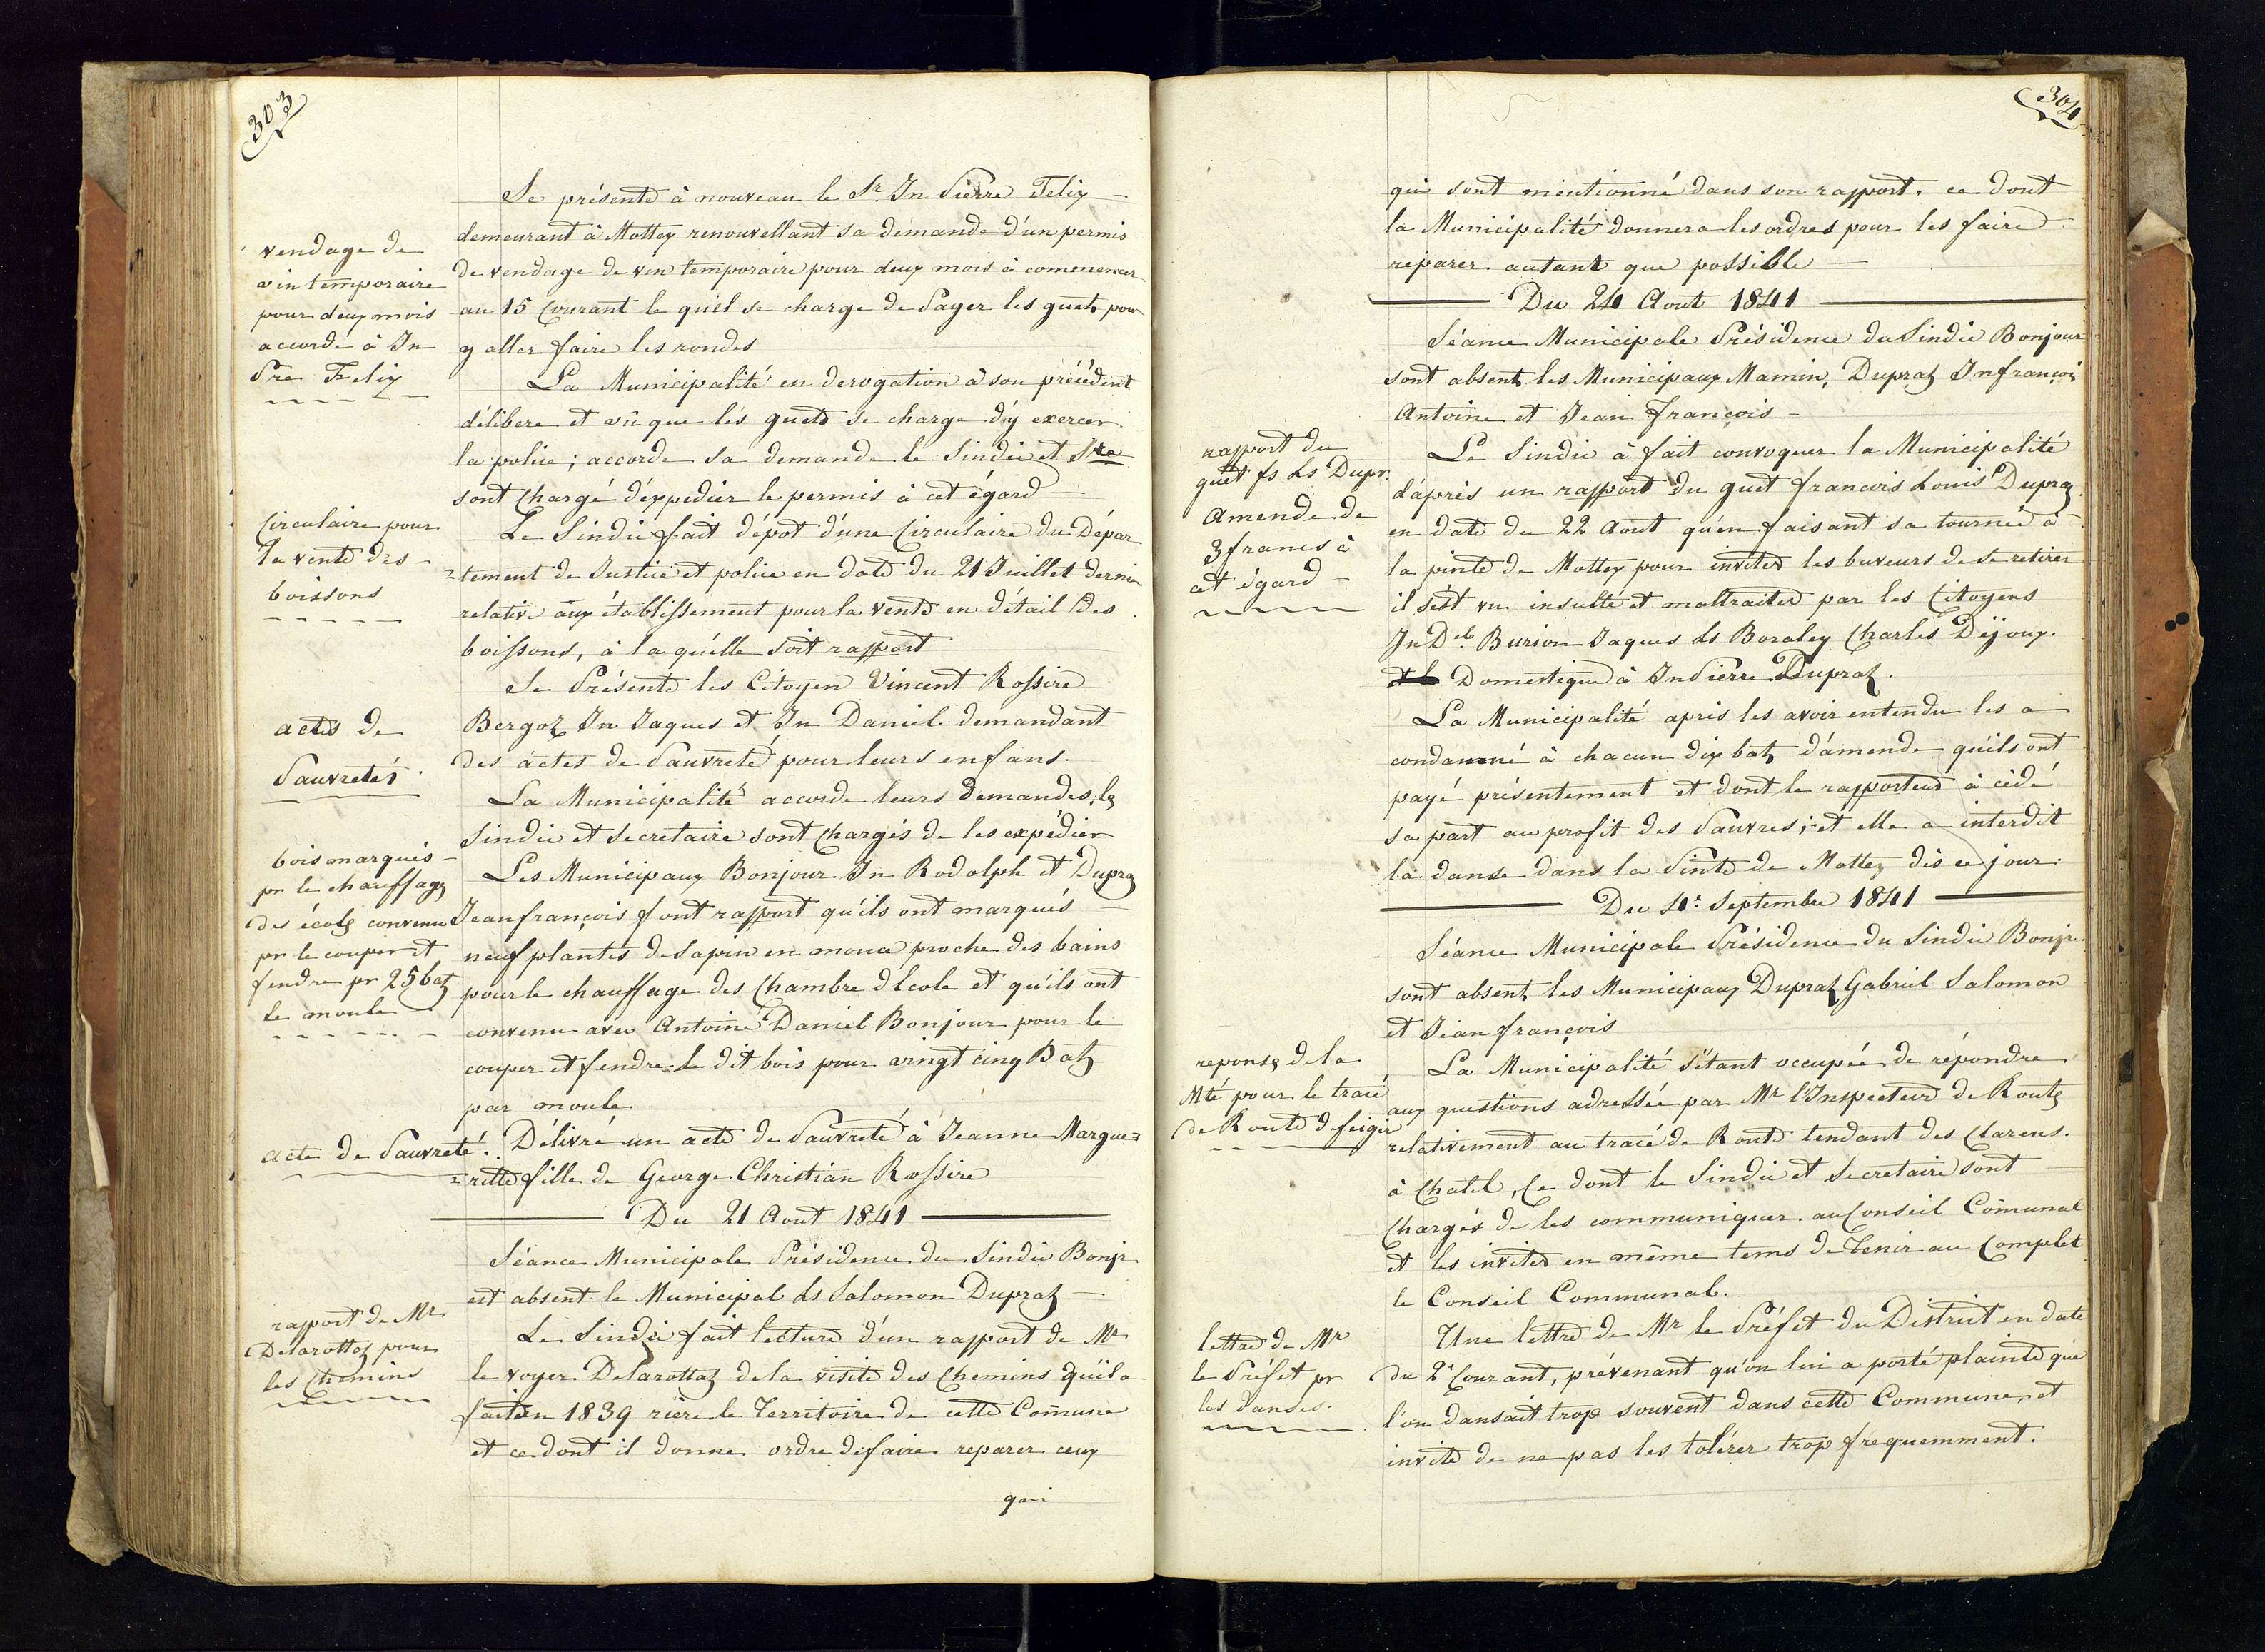 303
Se présente à nouveau le Sr. Jn Pierre Felix
demeurant à Mottey renouvellant sa demande d'un permis
de vendage de vin temporaire pour deux mois à commencer
au 15 Courant le quel se charge de Payer les guets pour
y aller faire les rondes
La Municipalité en derogation à son précédent
délibere et vû que les guets se charge d'y exercer
la police; accorde sa demande le Sindic et Sre
sont Chargé d'expedier le permis à cet égard
Le Sindic fait dépot d'une Circulaire du Dépar
=tement de Justice et police en date du 21 Juillet dernier
relative aux établissement pour la vente en détail des
boissons, à la quelle soit rapport
Se Présente les Citoyen Vincent Rossire
Bergoz Jn Jaques et Jn Daniel demandant
des actes de Pauvreté pour leurs enfans.
La Municipalité accorde leurs Demandes, le
Sindic et Secretaire sont Chargés de les expédier
Les Municipaux Bonjour Jn Rodolph et Dupraz
Jean françois font rapport qu'ils ont marqués
neuf plantes de Sapin en mouce proche des bains
pour le chauffage des Chambre d'Ecole et qu'ils ont
convenu avec Antoine Daniel Bonjour pour le
couper et fendre le dit bois pour vingt cinq Batz
par moule
Délivré un acte de Pauvreté à Jeanne Margue=
=ritte fille de George Christian Rossire
Du 21 Aout 1841
Séance Municipale Présidence du Sindic Bonjr
est absent le Municipal Ls Salomon Dupraz
Le Sindic fait lecture d'un rapport de Mr
le voyer Delarottaz de la visite des Chemins qu'il a
fait en 1839 rière le Territoire de cette Comune
et ce dont il donne ordre de faire reparer ceux
qui
vendage de
vin temporaire
pour deux mois
accorde à Jn
Pre Felix
Circulaire pour
la vente des
boissons
actes de
Pauvretés
bois marqués
pr le chauffage
des écoles convenu
pr le couper et
fendre pr 25 batz
le moule
acte de Pauvreté.
rapport de Mr
Delarottaz pour
les Chemins
304
qui sont mentionné dans son rapport. ce dont
la Municipalité donnera les ordres pour les faire
reparer autant que possible
Du 24 Aout 1841
Séance Municipale Présidence du Sindic Bonjour
sont absent les Municipaux Mamin, Dupraz Jn françois
Antoine et Jean François
Le Sindic à fait convoquer la Municipalité
d'après un rapport du guet francois Louis Dupraz
en date du 22 Aout qu'en faisant sa tournée à
la pinte de Mottey pour inviter les buveurs de se retirer
il s'est vu insulté et maltraiter par les Citoyens
Jn Del. Burion Jaques Ls Boraley Charles Dejoux.
Domestique à Jn Pierre Dupraz.
La Municipalité après les avoir entendu les a
condamné à chacun dix batz d'amende qu'ils ont
payé présentement et dont le rapporteur à cédé
sa part au profit des Pauvres; et elle a interdit
la danse dans la Pinte de Mottey dès ce jour.
Du 4e. Septembre 1841
Séance Municipale Présidence du Sindic Bonjr.
sont absent les Municipaux Dupraz Gabriel Salomon
et Jean françois
La Municipalité s'étant occupée de répondre
aux questions adressée par Mr l'Inspecteur de Routes
relativement au tracé de Route tendant des Clarens.
à Chatel, Ce dont le Sindic et Secretaire sont
Chargés de les communiquer au Conseil Comunal
et les inviter en même tems de Tenir au Complet
le Conseil Communal.
Une lettre de Mr le Préfet du District en date
du 2e Courant, prévenant qu'on lui a porté plainte que
l'on dansait trop souvent dans cette Commune, et
invite de ne pas les tolérer trop frequemment.
rapport du
guet fs Ls Dupr.
Amende de
3 francs à
cet égard
reponse de la
Mté pour le tracé
de Route d feigir
lettre de Mr
le Préfet pr
les Danses.